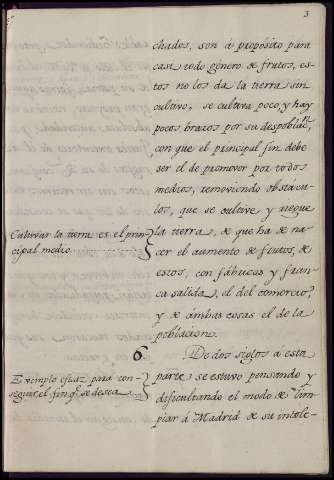 3
chados, son á propósito para
casi todo género de frutos, es-
tos no los da la tierra sin
cultivo, se cultiva poco, y hay
pocos brazos por su despoblaⁿ,
con que el principal fin debe
ser el de promover por todos
medios, removiendo obstacu-
los, que se cultive y riegue
Cultivar la tierra es el prin-
cipal medio.
la tierra, de que ha de na-
cer el aumento de frutos, de
estos, con fábricas y fran-
ca salida, el del comercio,
y de ámbas cosas el de la
poblacion.
6
De dos siglos á esta
Exemplo eficaz para con-
seguir el fin qᵉ se desea.
parte se estuvo pensando y
dificultando el modo de lim-
piar á Madrid de su intole-